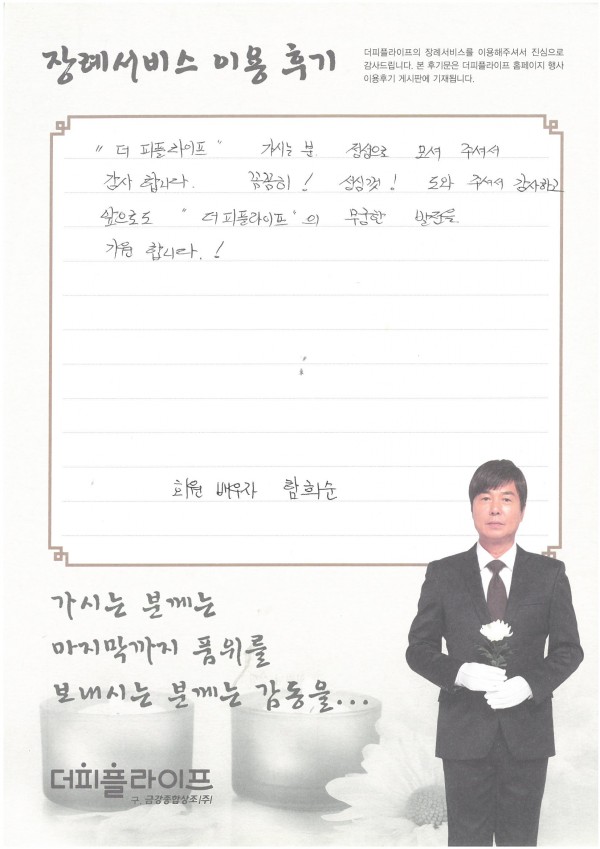 장례서비스 이용 후기
더피플라이프의 장례서비스를 이용해주셔서 진심으로
감사드립니다. 본 후기문은 더피플라이프 홈페이지 행사
이용후기 게시판에 기재됩니다.
"더 피플라이프" 가시는 분 정성으로 모셔 주셔서
감사 합니다. 꼼꼼히! 성심껏! 도와 주셔서 감사하고
앞으로도 "더 피플라이프"의 무궁한 발전을
기원 합니다.!
회원 배우자 함화순
가시는 분께는
마지막까지 품위를
보내시는 분께는 감동을...
더피플라이프
구. 금강종합상조(주)